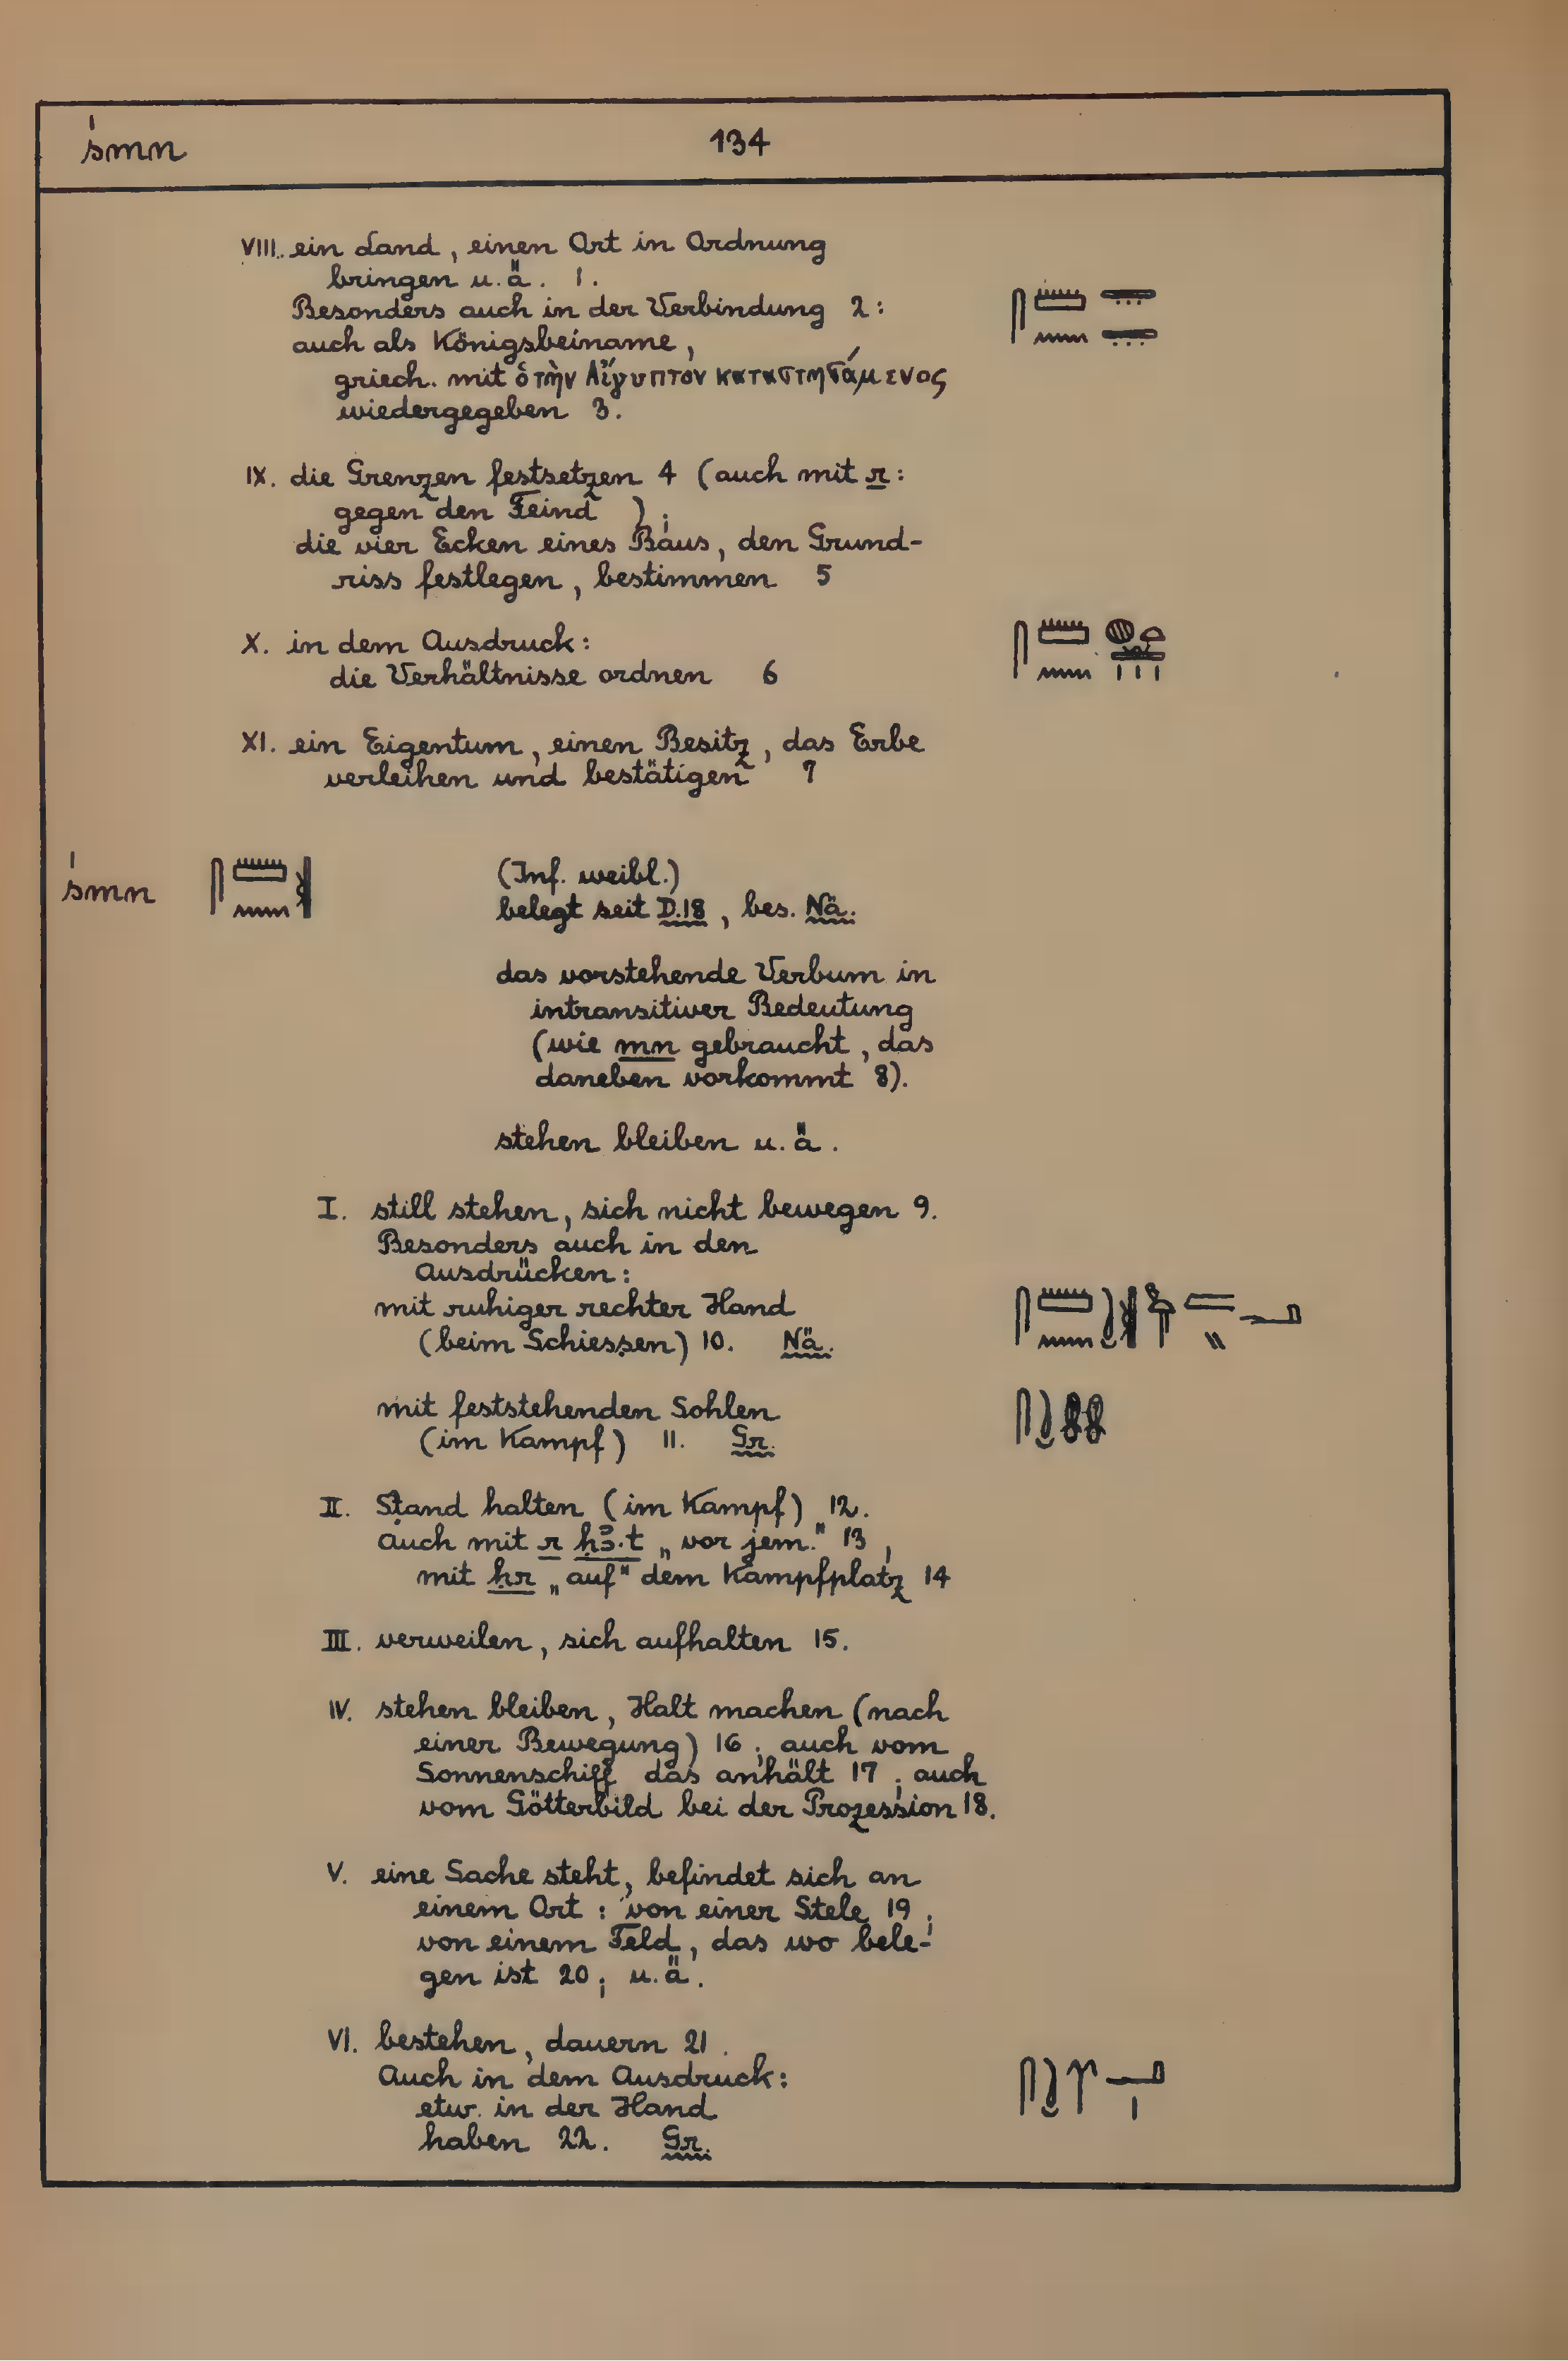 śmn 134
VIII. ein Land, einen Ort in Ordnung
bringen u.ä. 1.
Besonders auch in der Verbindung 2: 𓋴𓏠𓈖𓇿𓇿
auch als Königsbeiname,
griech. mit ὁ τὴν Αἴγυπτον καταστησάμενος
wiedergegeben 3.
IX. die Grenzen festsetzen 4 (auch mit r:
gegen den Feind );
die vier Ecken eines Baus, den Grund-
riss festlegen, bestimmen 5
X. in dem Ausdruck:
die Verhältnisse ordnen 6
XI. ein Eigentum, einen Besitz, das Erbe
verleihen und bestätigen 7
śmn 𓋴𓏠𓈖𓏛 (Inf. weibl.)
belegt seit D.18, bes. Nä.
das vorstehende Verbum in
intransitiver Bedeutung
(wie mn gebraucht, das
daneben vorkommt 8).
stehen bleiben u.ä.
I. still stehen, sich nicht bewegen 9.
Besonders auch in den
Ausdrücken:
mit ruhiger rechter Hand
(beim Schiessen) 10. Nä.
mit feststehenden Sohlen
(im Kampf) 11. Gr.
II. Stand halten (im Kampf) 12.
Auch mit r ḥꜣ·t „vor jem." 13,
mit ḥr „auf" dem Kampfplatz 14
III. verweilen, sich aufhalten 15.
IV. stehen bleiben, Halt machen (nach
einer Bewegung) 16; auch vom
Sonnenschiff das anhält 17; auch
vom Götterbild bei der Prozession 18.
V. eine Sache steht, befindet sich an
einem Ort: von einer Stele 19;
von einem Feld, das wo bele-
gen ist 20; u.ä.
VI. bestehen, dauern 21.
Auch in dem Ausdruck:
etw. in der Hand
haben 22. Gr.